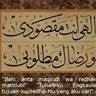 الهي أنت مقصودي
ورضاك مطلوبي
"Ilahi anta maqsudi wa redhaka
mathlubi" "Tuhanku Engkaulah
tujuanku, redha-Mu yang aku cari"